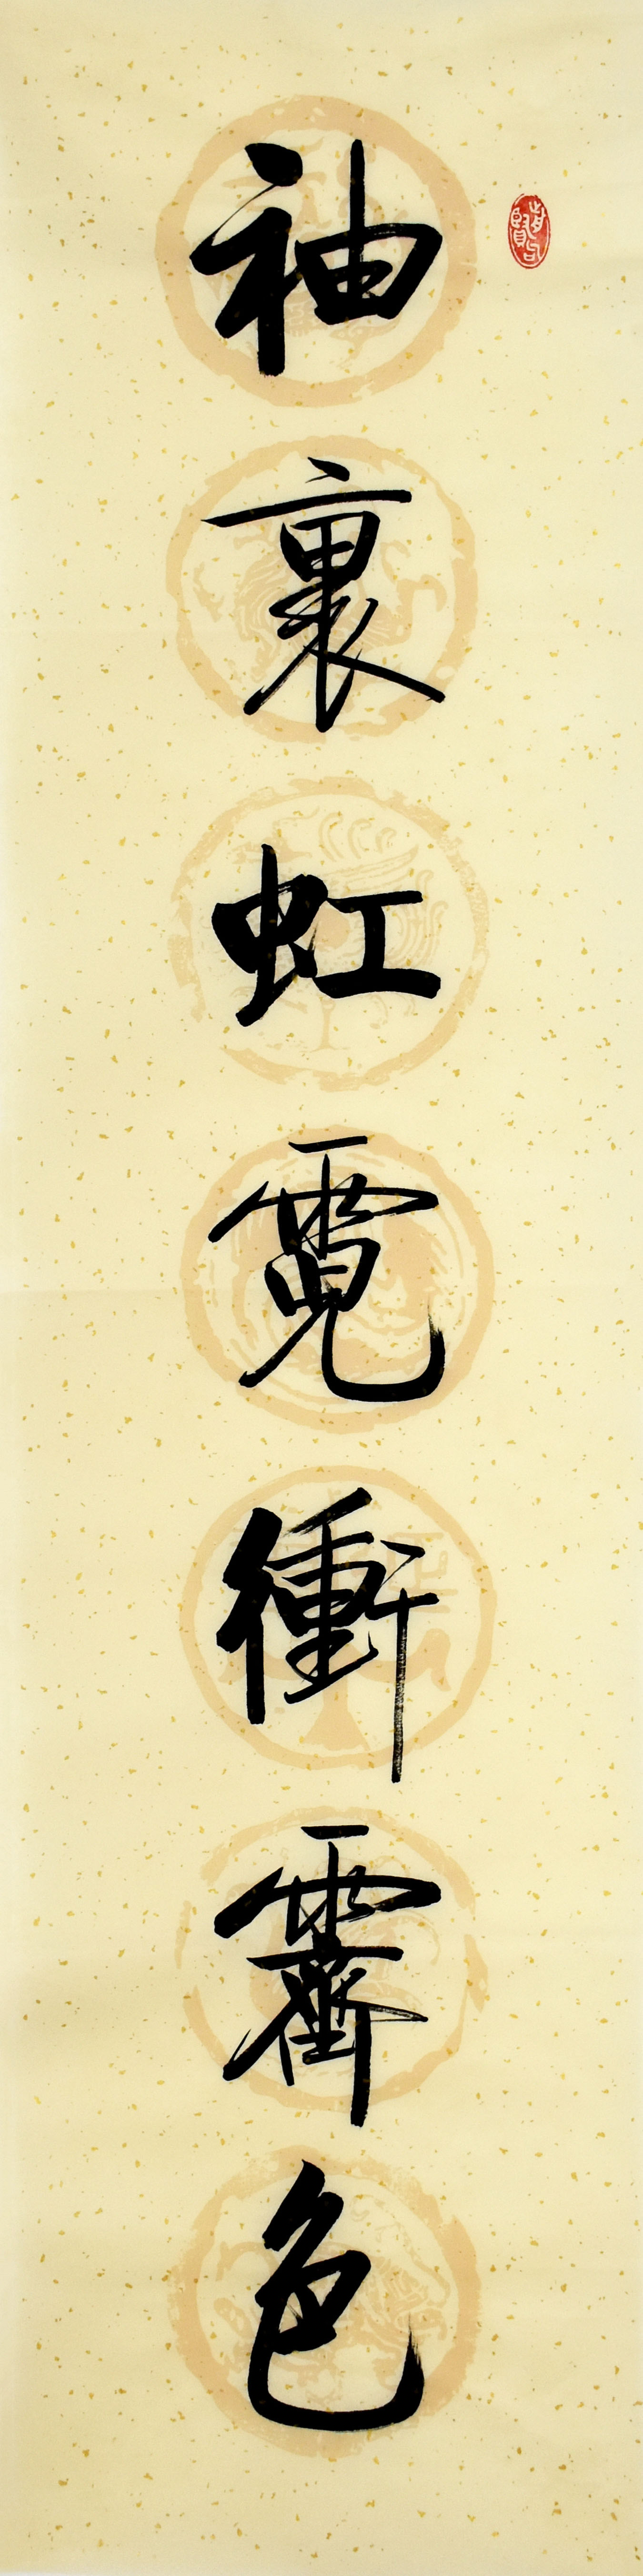 袖裏虹霓衝霽色